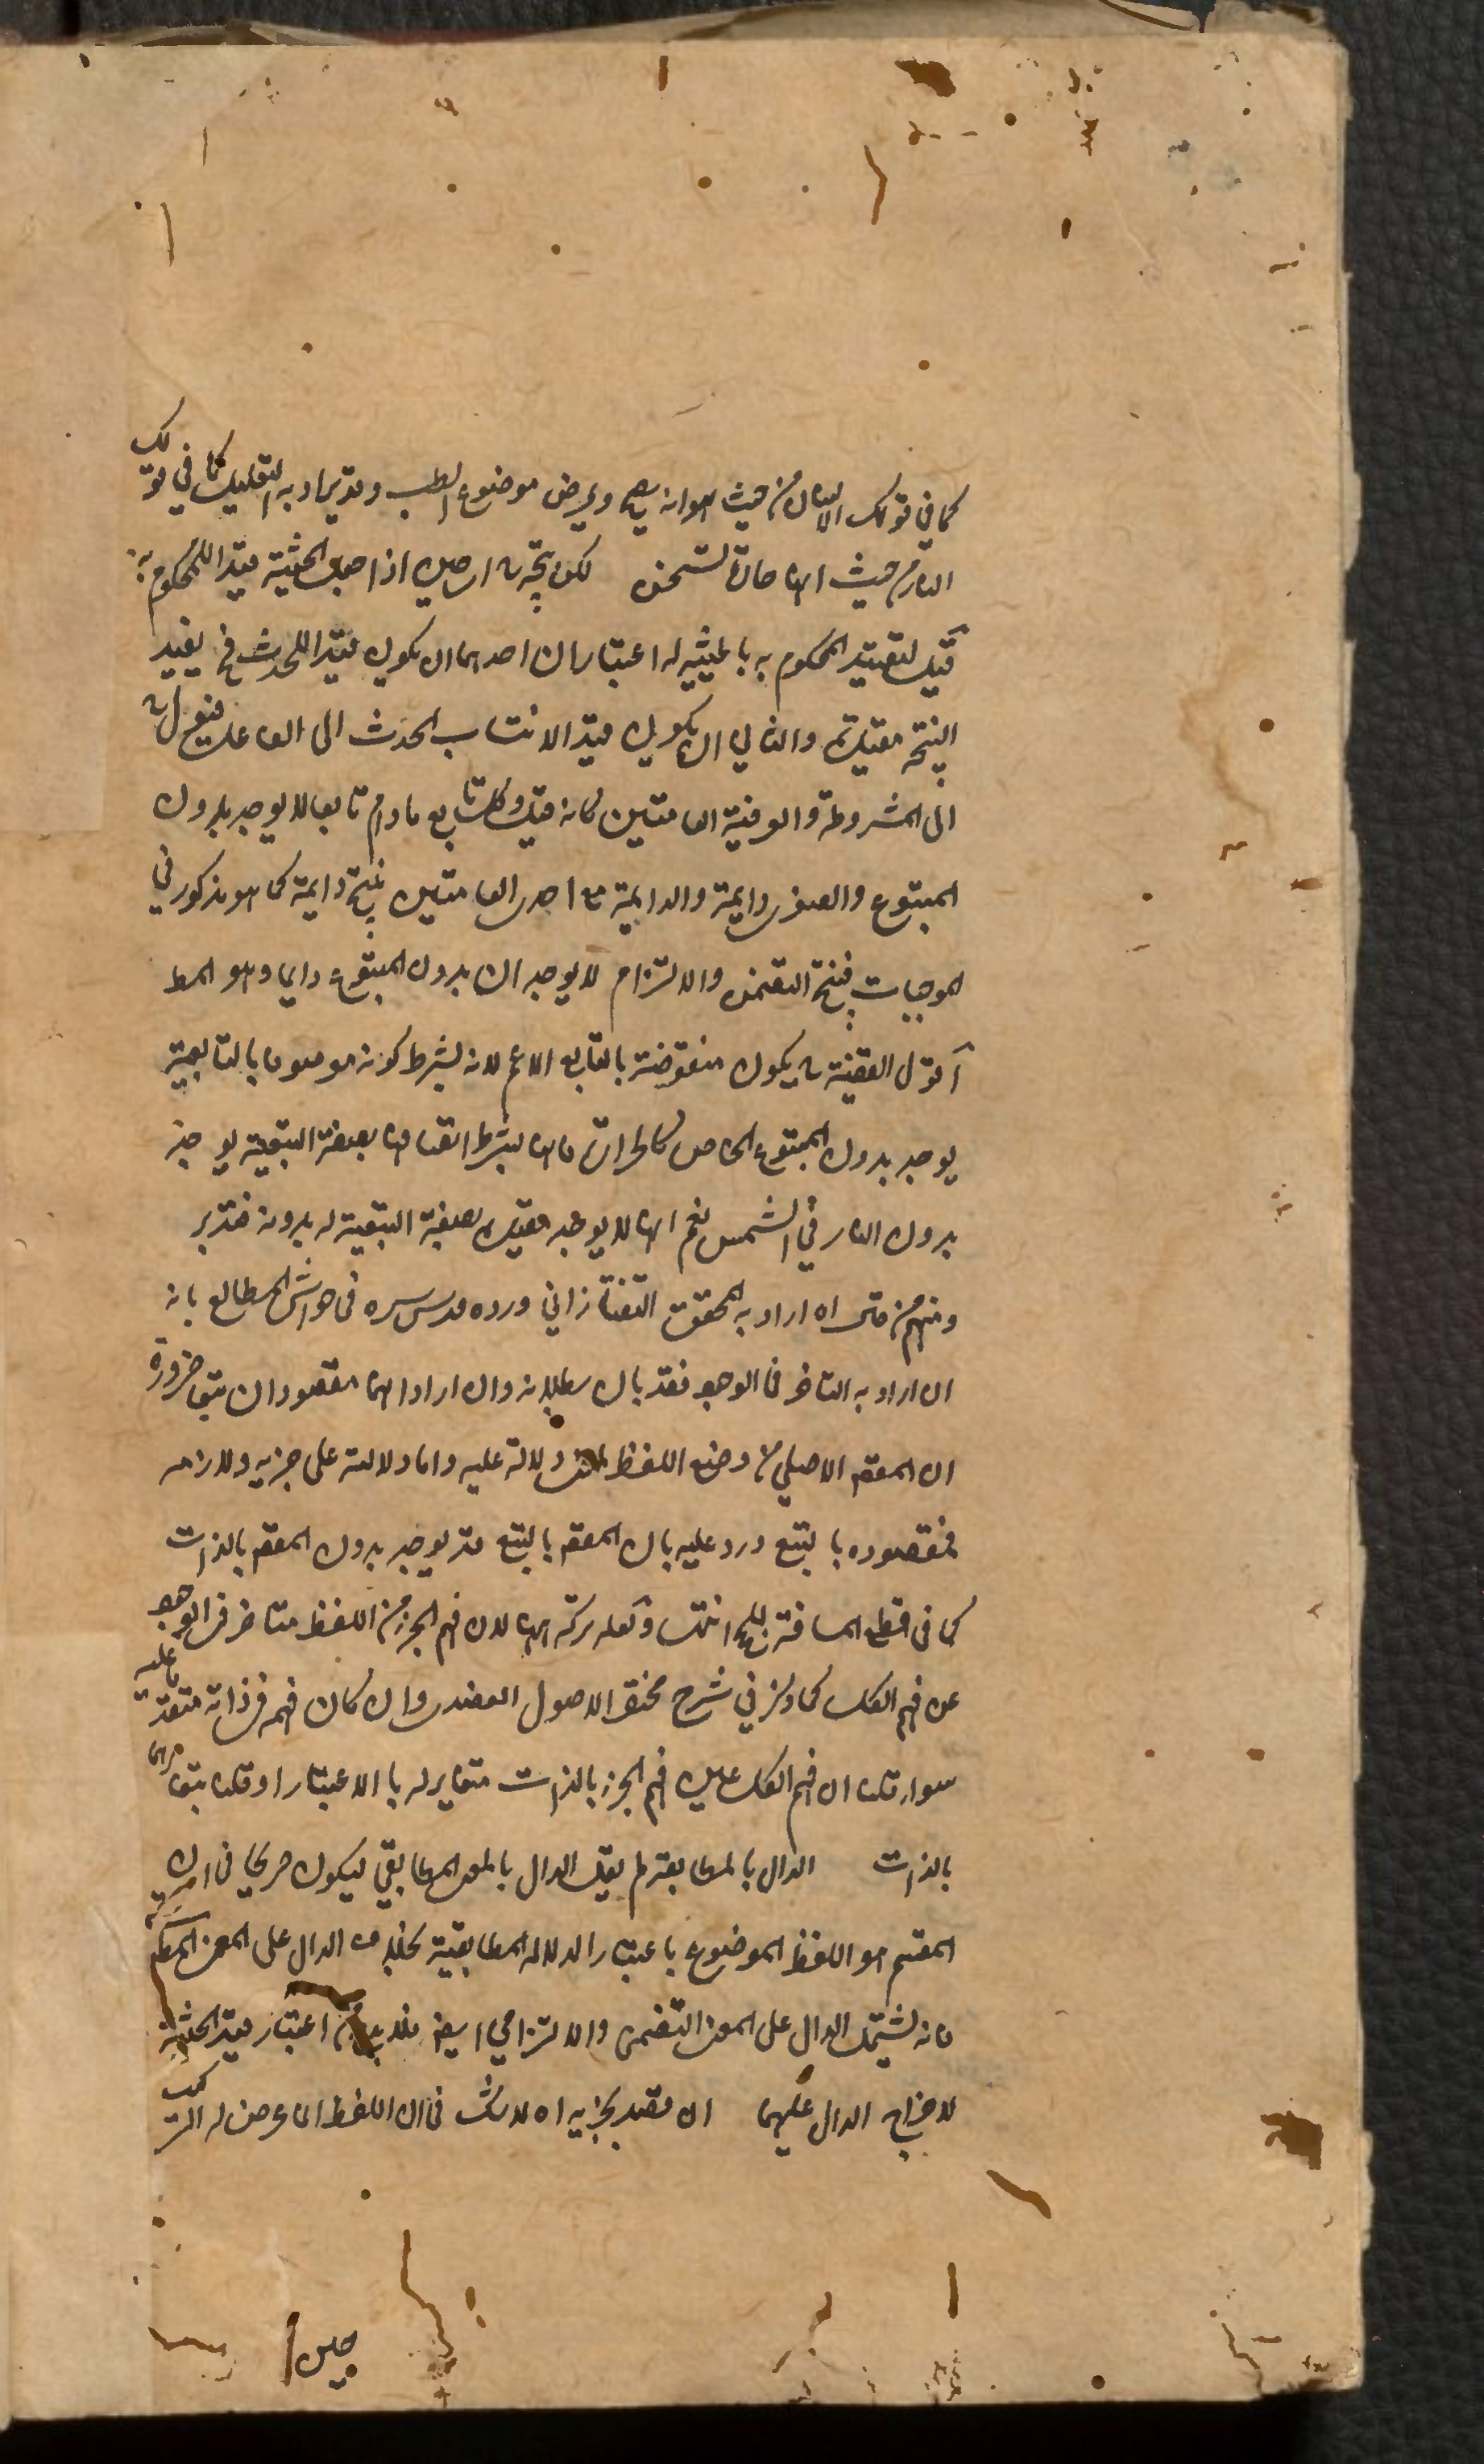 كما في قولك الانسان من حيث هو انه يصح ويمرض موضوع الطب وقد يراد به التقليل كما في قولك
النار من حيث انها حارة تسخن لكن اذا جعل الحيثية قيدا للمحكوم به
قيل لتقييد المحكوم به بالحيثية له اعتباران احدهما ان يكون قيدا للحدث في يفيد
النتيجة مقيدة والثاني ان يكون قيد الانتساب الحدث الى الفاعل
الى المشروطة والعرفية العامتين كانه قيل وكل تابع ما دام تابعا لا يوجد بدون
المتبوع والصغرى دايمة والدايمة مع احدى العامتين ينتج دايمة كما هو مذكور في
الموجهات فينتج التضمن والالتزام لا يوجدان بدون المتبوع دايما وهو المط
اقول القضية ح يكون منقوضة بالتابع الاعم لانه بشرط كونه موصوفا بالتابعية
يوجد بدون المتبوع الخاص كالحرارة فانها بشرط اتصافها بصفة التبعية يوجد
بدون النار في الشمس نعم انها لا يوجد مقيدة بصفة التبعية له بدونه فتدبر
ومنهم من اه اراد به المحقق التفتازاني ورده قدس سره في حواشي المطالع بانه
ان اراد به التاخر في الوجود فقد بان بطلانه وان اراد انهما مقصودان تبعا ضرورة
ان المقصد الاصلي من وضع اللفظ دلالة عليه واما دلالته على جزئه ولازمه
فمقصوده بالتبع ورد عليه بان المقصد بالتبع قد يوجد بدون المقصد بالذات
كما في قطع المسافة للحج انتهى ولعله تركه لان فهم الجزء من اللفظ متاخر في الوجود
عن فهم الكل كما ذكر في شرح مختصر الاصول العضدي وان كان فهمه في ذاته متقدما عليه
سواء قلنا ان فهم الكل عين فهم الجزء بالذات متغاير له بالاعتبار او قلنا بتغايرهما
بالذات الدال بالمطابقة لم يقل الدال بالمعنى المطابقي ليكون صريحا في ان
المقسم هو اللفظ الموضوع باعتبار الدلالة المطابقية بخلاف الدال على المعنى المطابقي
فانه يشتمل الدال على المعنى التضمني والالتزامي ايضا فلا بد من اعتبار قيد الحيثية
لاخراج الدال عليهما ان قصد بجزئه اه لا شك في ان اللفظ انما عرض له التركيب